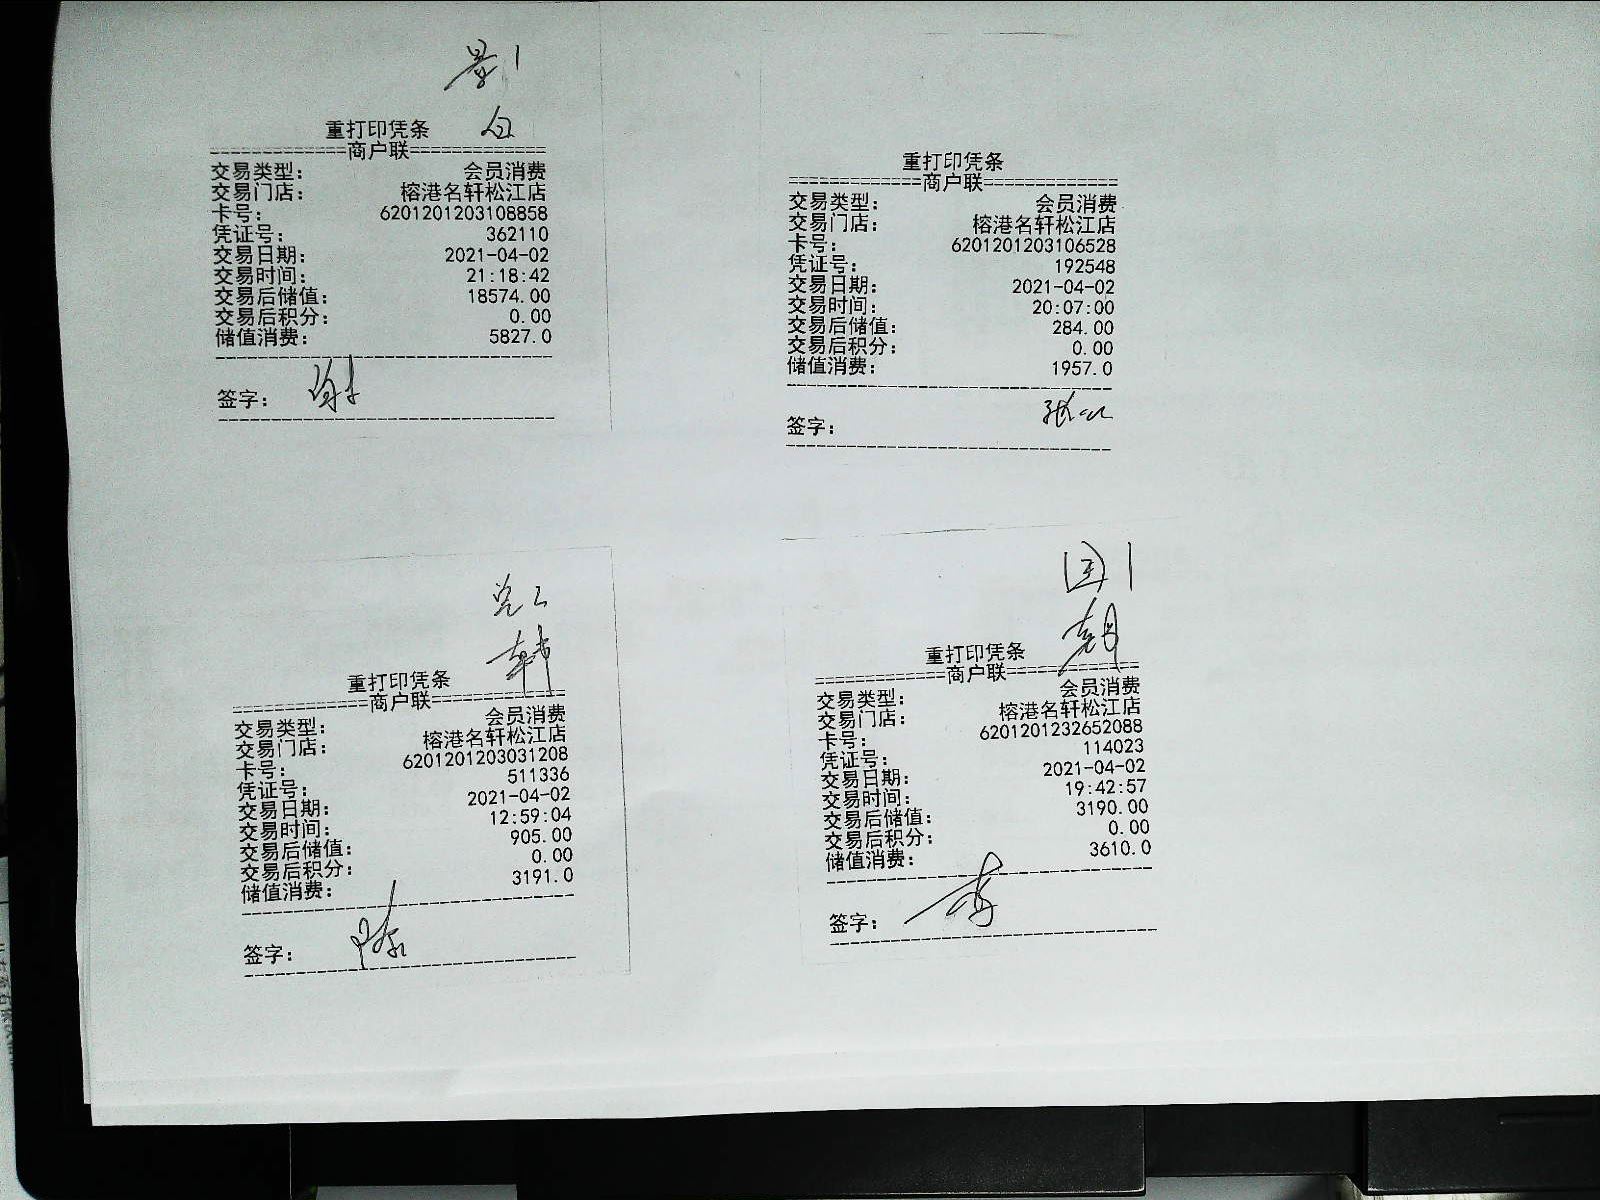 重打印凭条
=============商户联=============
交易类型: 会员消费
交易门店: 榕港名轩松江店
卡号: 6201201203108858
凭证号: 362110
交易日期: 2021-04-02
交易时间: 21:18:42
交易后储值: 18574.00
交易后积分: 0.00
储值消费: 5827.0
签字:
重打印凭条
=============商户联=============
交易类型: 会员消费
交易门店: 榕港名轩松江店
卡号: 6201201203106528
凭证号: 192548
交易日期: 2021-04-02
交易时间: 20:07:00
交易后储值: 284.00
交易后积分: 0.00
储值消费: 1957.0
签字:
韩
重打印凭条
=============商户联=============
交易类型: 会员消费
交易门店: 榕港名轩松江店
卡号: 6201201203031208
凭证号: 511336
交易日期: 2021-04-02
交易时间: 12:59:04
交易后储值: 905.00
交易后积分: 0.00
储值消费: 3191.0
签字:
国1
朝
重打印凭条
=============商户联=============
交易类型: 会员消费
交易门店: 榕港名轩松江店
卡号: 6201201232652088
凭证号: 114023
交易日期: 2021-04-02
交易时间: 19:42:57
交易后储值: 3190.00
交易后积分: 0.00
储值消费: 3610.0
签字: 李